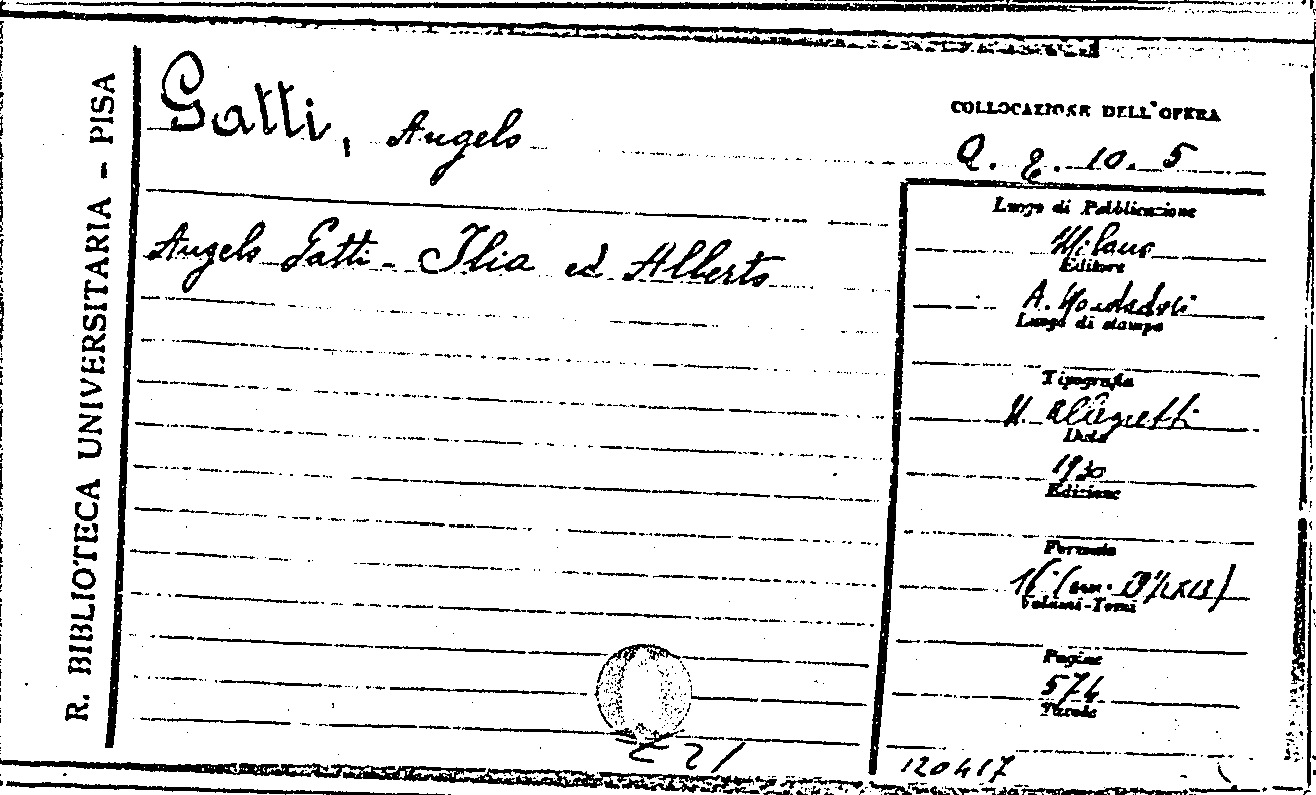 R. BIBLIOTECA UNIVERSITARIA - PISA
Gatti, Angelo
Angelo Gatti - Ilia ed Alberto
COLLOCAZIONE DELL'OPERA
Q. g. 10. 5
Luogo di Pubblicazione
Milano
Editore
A. Mondadori
Luogo di stampa
Tipografia
U. Allegretti
Data
1930
Edizione
Formato
16°
Volumi-Tomi
Pagine
574
Tavole
120417